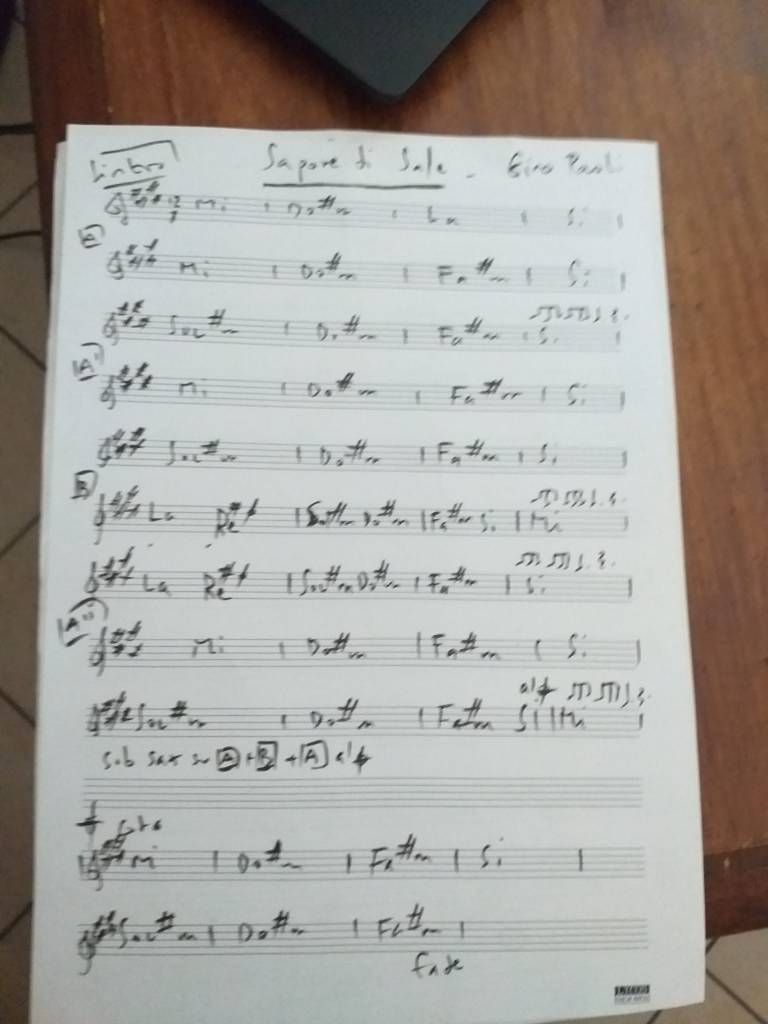 Sapore di Sale - Gino Paoli
Mi | Do#m | La | Si |
A
Mi | Do#m | Fa#m | Si |
Sol#m | Do#m | Fa#m | Si |
A'
Mi | Do#m | Fa#m | Si |
Sol#m | Do#m | Fa#m | Si |
B
La Re | Sol#m Do#m | Fa#m Si | Mi |
La Re | Sol#m Do#m | Fa#m | Si |
A"
Mi | Do#m | Fa#m | Si |
Sol#m | Do#m | Fa#m Si || Mi |
sax su A + B + A
Mi | Do#m | Fa#m | Si |
Sol#m | Do#m | Fa#m |
fade